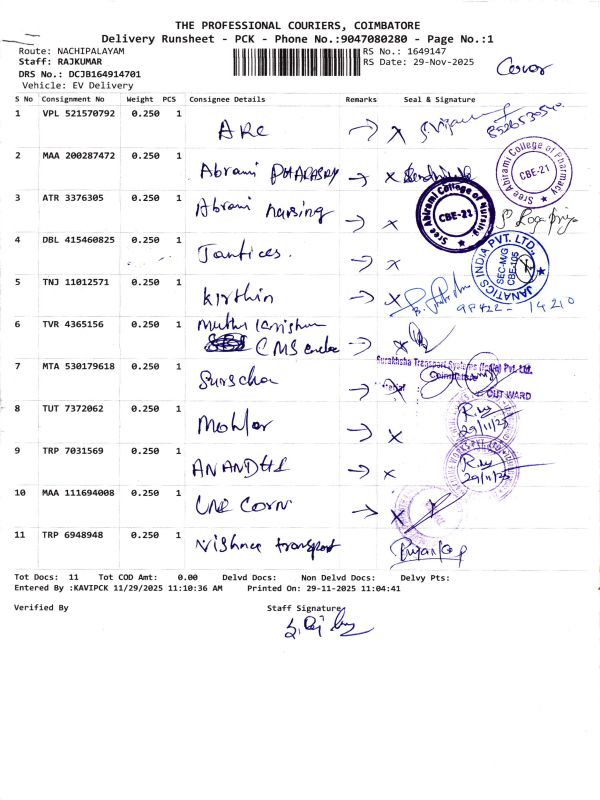 THE PROFESSIONAL COURIERS, COIMBATORE
Delivery Runsheet - PCK - Phone No.:9047080280 - Page No.:1
Route: NACHIPALAYAM RS No.: 1649147
Staff: RAJKUMAR RS Date: 29-Nov-2025
DRS No.: DCJB164914701
Vehicle: EV Delivery
Cover
S No Consignment No Weight PCS Consignee Details Remarks Seal & Signature
1 VPL 521570792 0.250 1 ARC
2 MAA 200287472 0.250 1 Abrami
Sree Abirami College of Pharmacy
CBE-21
3 ATR 3376305 0.250 1 Abrami nursing
Sree Abirami College of Nursing
CBE-21
4 DBL 415460825 0.250 1
JANATICS INDIA PVT. LTD.,
SEC-M/G
CBE-105
5 TNJ 11012571 0.250 1 Kirthin
98422-14210
6 TVR 4365156 0.250 1
CMS
7 MTA 530179618 0.250 1
Suraksha Transport Systems (India) Pvt. Ltd.
OUTWARD
8 TUT 7372062 0.250 1
29/11/25
9 TRP 7031569 0.250 1 ANANDHI
29/11/25
10 MAA 111694008 0.250 1 CORN
11 TRP 6948948 0.250 1 Vishnu transport
Tot Docs: 11 Tot COD Amt: 0.00 Delvd Docs: Non Delvd Docs: Delvy Pts:
Entered By :KAVIPCK 11/29/2025 11:10:36 AM Printed On: 29-11-2025 11:04:41
Verified By Staff Signature